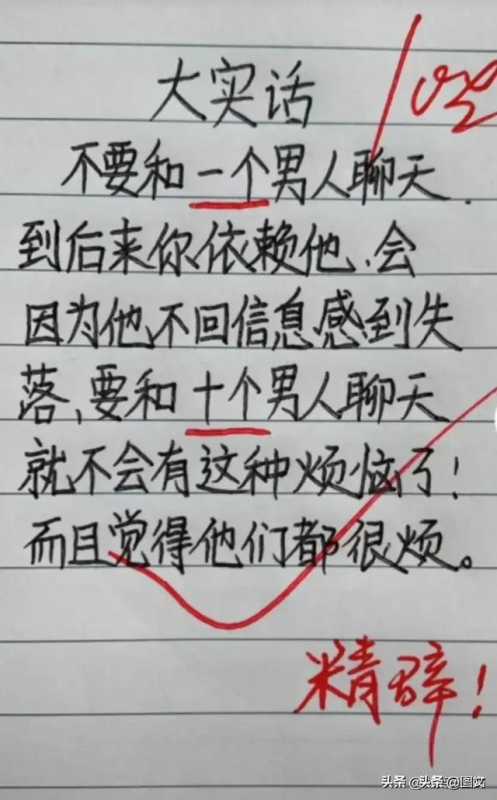 大实话
不要和一个男人聊天.
到后来你依赖他,会
因为他不回信息感到失
落,要和十个男人聊天
就不会有这种烦恼了!
而且觉得他们都很烦。
精辟!
头条 @头条:图文